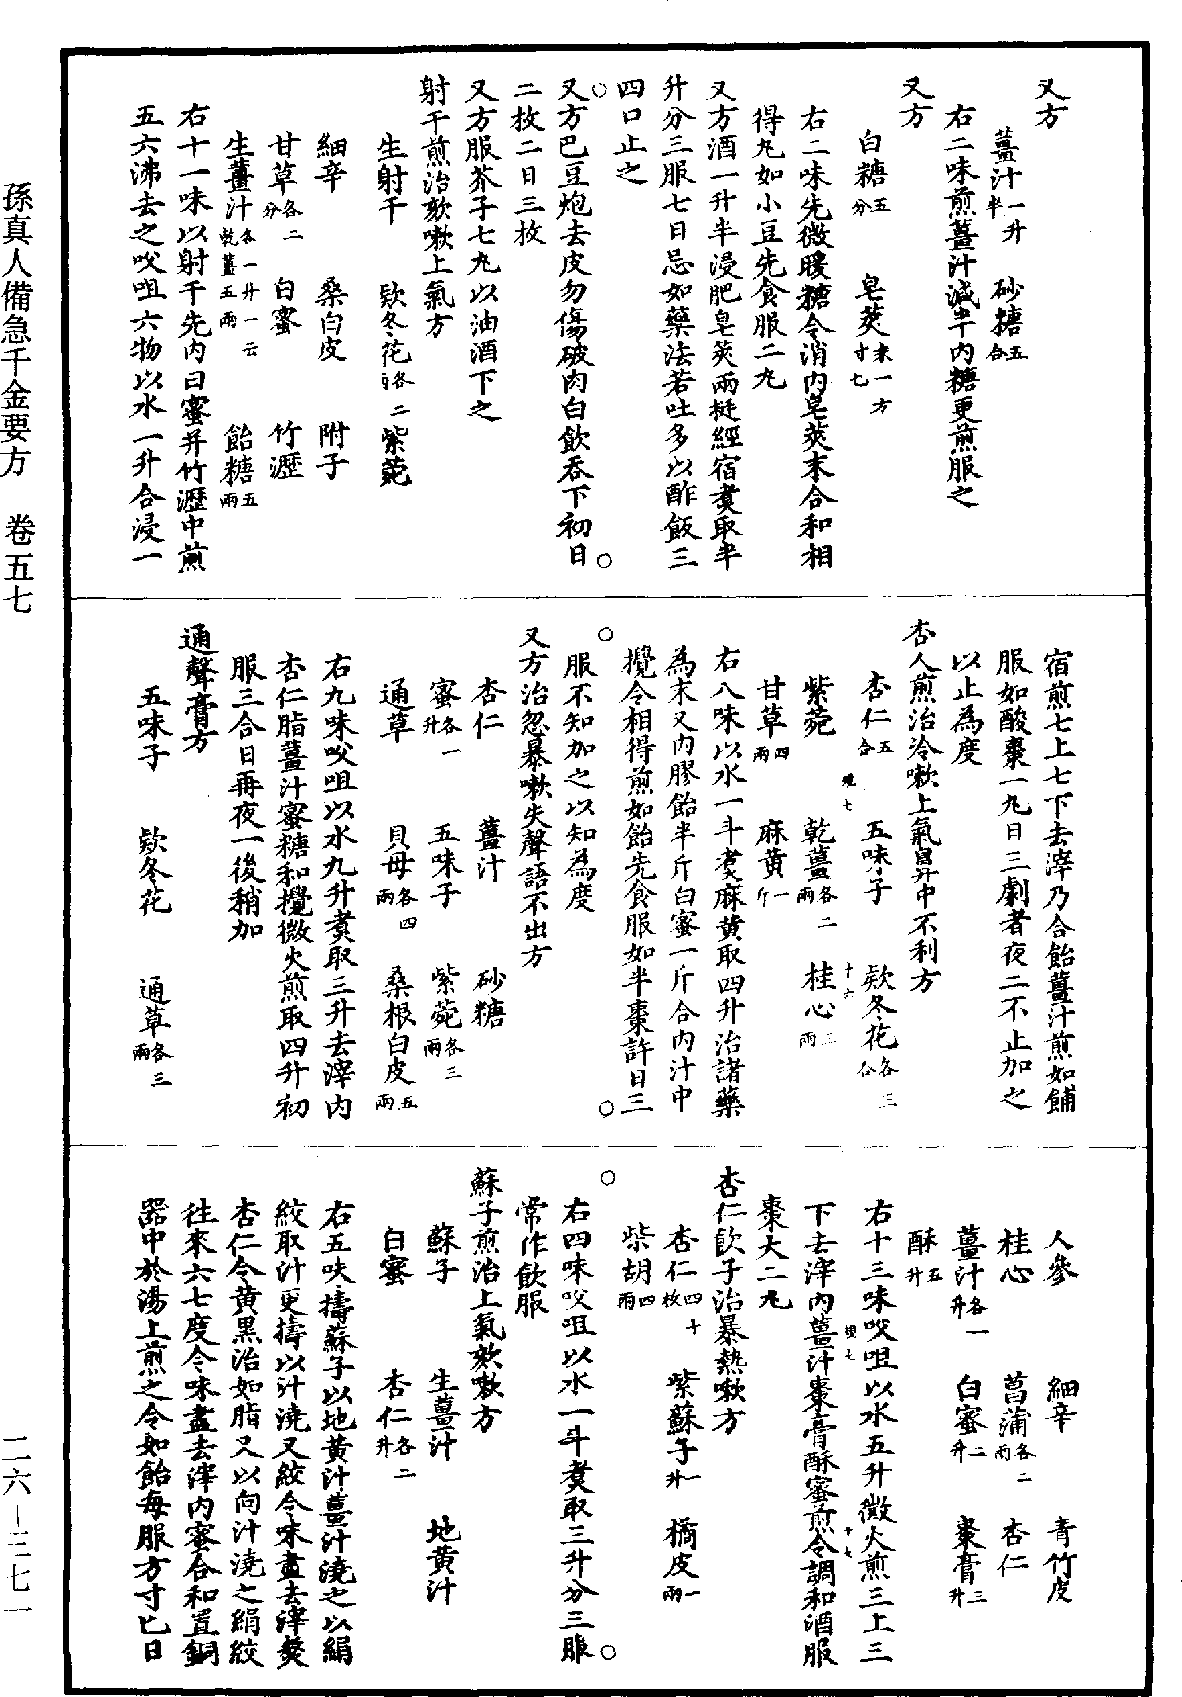 孫真人備急千金要方　卷五七
二六—三七一
又方
薑汁一升半　砂糖五合
右二味煎薑汁減半内糖更煎服之
又方
白糖五分　皂莢末一方寸七
右二味先微暖糖令消内皂莢末合和相
得丸如小豆先食服二丸
又方酒一升半浸肥皂莢兩挺經宿煑取半
升分三服七日忌如藥法若吐多以酢飯三
四口止之
又方巴豆炮去皮勿傷破肉白飲吞下初日
二枚二日三枚
又方服芥子七丸以油酒下之
射干煎治欬嗽上氣方
生射干　款冬花各二兩　紫菀
細辛　桑白皮　附子
甘草各二分　白蜜　竹瀝
生薑汁各一升一云乾薑五兩　飴糖五兩
右十一味以射干先内白蜜并竹瀝中煎
五六沸去之㕮咀六物以水一升合浸一
宿煎七上七下去滓乃合飴薑汁煎如餔
服如酸棗一丸日三劇者夜二不止加之
以止為度
杏人煎治冷嗽上氣鼻中不利方
杏仁五合　五味子　款冬花各三合
紫菀　乾薑各二兩　桂心三兩
甘草四兩　麻黄一斤
右八味以水一斗煑麻黄取四升治諸藥
為末又内膠飴半斤白蜜一斤合内汁中
攪令相得煎如飴先食服如半棗許日三
服不知加之以知為度
又方治忽暴嗽失聲語不出方
杏仁　薑汁　砂糖
蜜各一升　五味子　紫菀各三兩
通草　貝母各四兩　桑根白皮五兩
右九味㕮咀以水九升煑取三升去滓内
杏仁脂薑汁蜜糖和攪微火煎取四升初
服三合日再夜一後稍加
通聲膏方
五味子　款冬花　通草各三兩
人參　細辛　青竹皮
桂心　菖蒲各二兩　杏仁
薑汁各一升　白蜜二升　棗膏三升
酥五升
右十三味㕮咀以水五升微火煎三上三
下去滓内薑汁棗膏酥蜜煎令調和酒服
棗大二丸
杏仁飲子治暴熱嗽方
杏仁四十枚　紫蘇子一升　橘皮一兩
柴胡四兩
右四味㕮咀以水一斗煑取三升分三服
常作飲服
蘇子煎治上氣欬嗽方
蘇子　生薑汁　地黄汁
白蜜　杏仁各二升
右五味擣蘇子以地黄汁薑汁澆之以絹
絞取汁更擣以汁澆又絞令味盡去滓熬
杏仁令黄黑治如脂又以向汁澆之絹絞
往來六七度令味盡去滓内蜜合和置銅
器中於湯上煎之令如飴每服方寸匕日